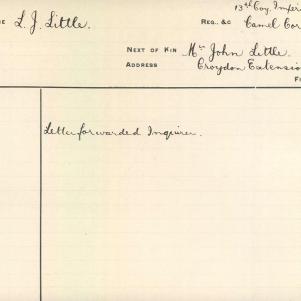 13th Coy. Imperi
E L. J. Little. REG. &C Camel Cor
NEXT OF KIN Mr John Little.
ADDRESS Croydon Extensio
F
Letter forwarded Inquirer.